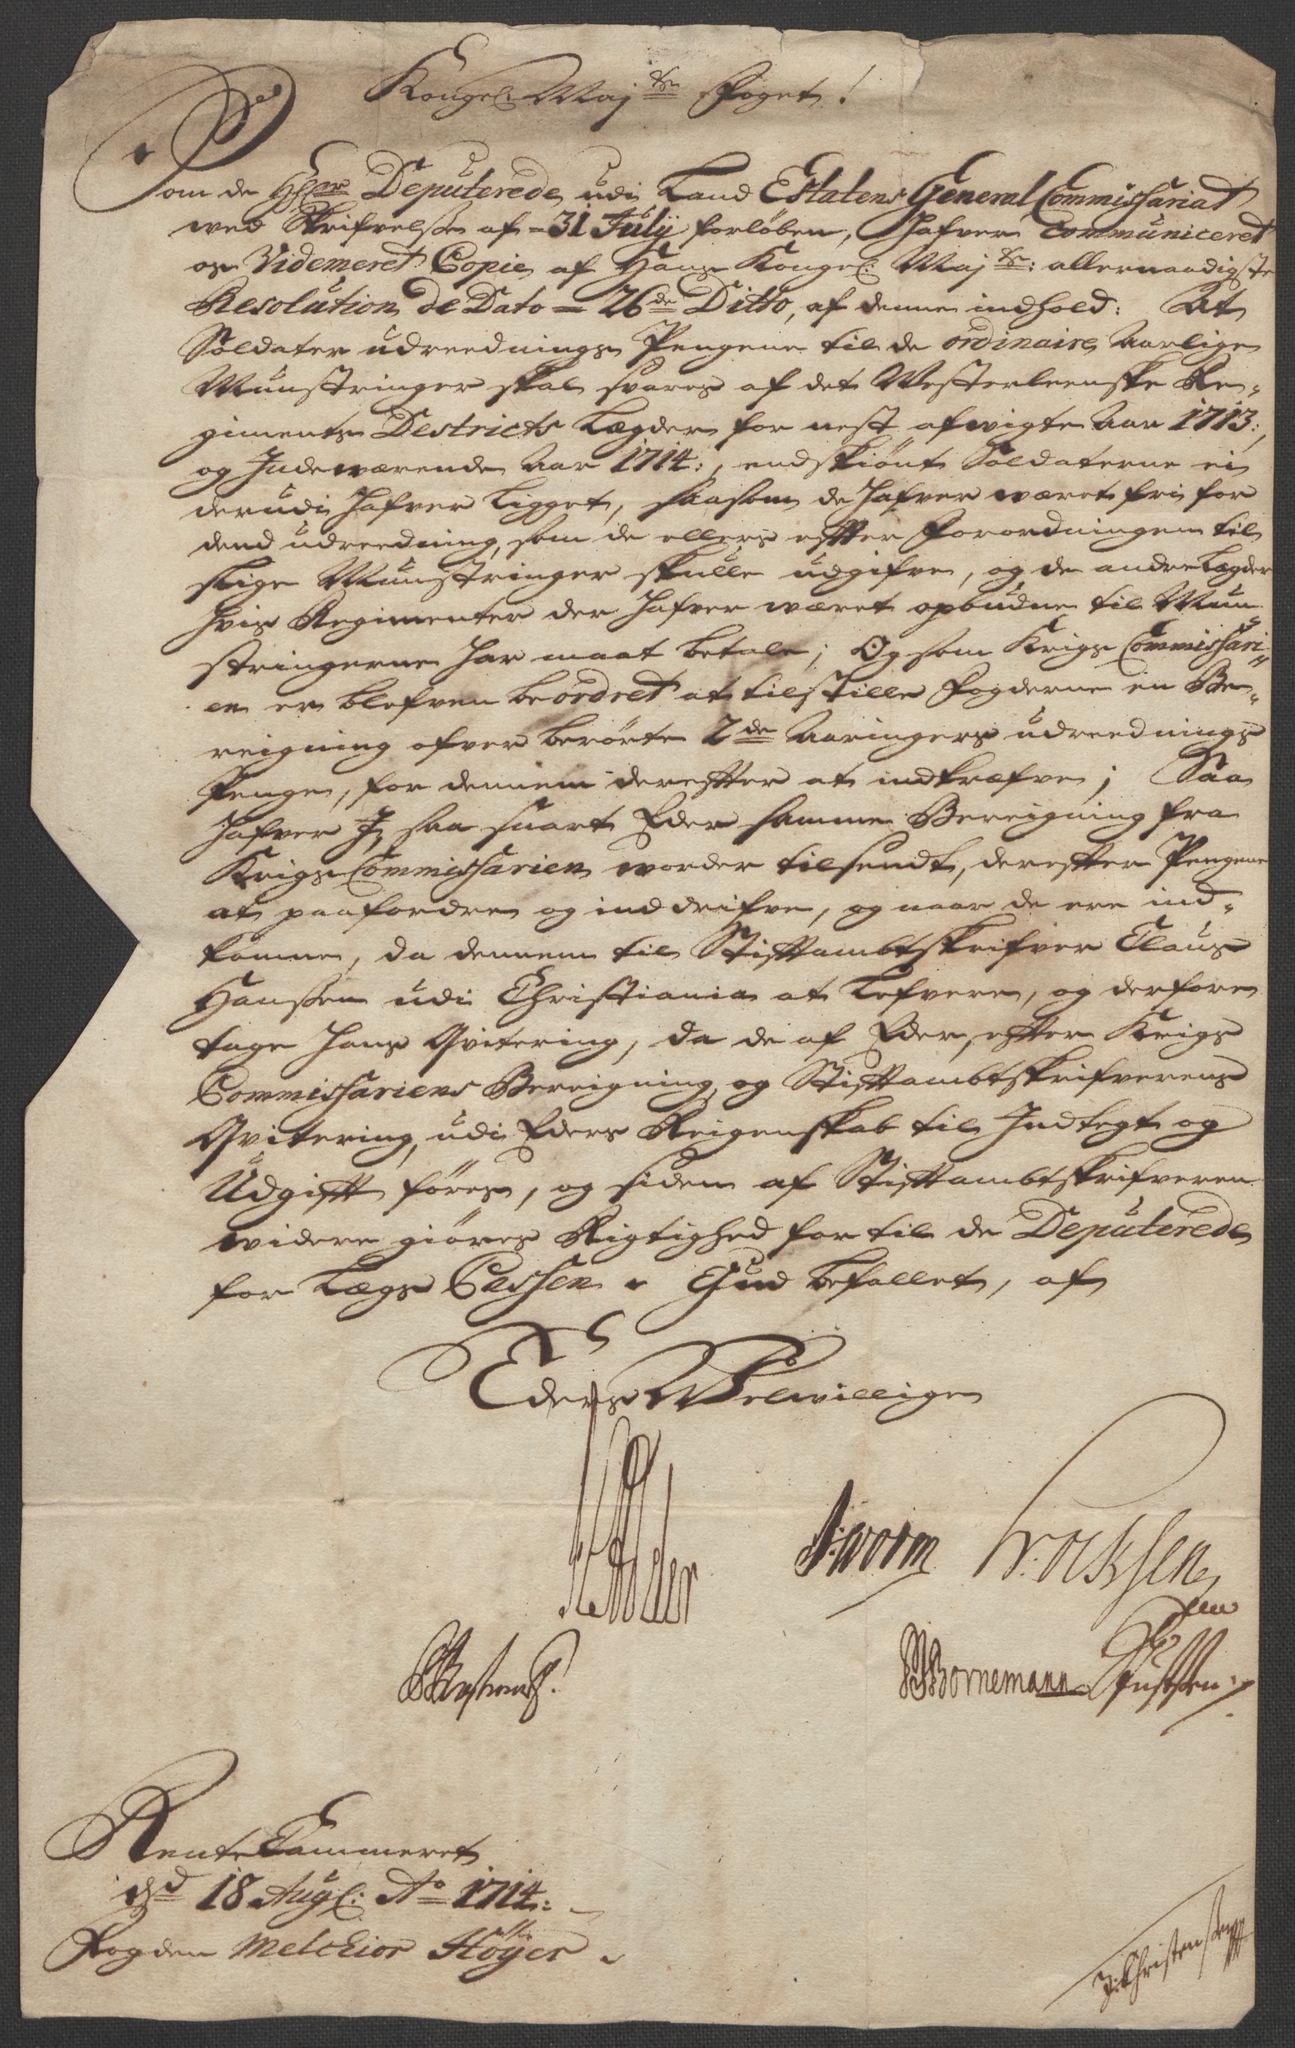 Kongel: Maj:ts Foget!
Som de Hrer Deputerede udi Land Estatens General Commissariat
wed Skrifvelse af 31 July forløben, Hafver communiceret
os Videmeret Copie af Hans Kongel: Maj:ts: allernaadigste
Resolution de Dato 26de Ditto, af denne indhold: At
Soldater udreednings Pengene til de ordinaire Aarlige
Munstringer skal svares af det Westerleenske Re-
giments Destricts Lægder for nest afwigte Aar 1713:,
og Indeværende Aar 1714:, endskiønt Soldaterne ei
derudi Hafver Ligget, saasom de Hafver wæret fri for
dend udreedning, som de ellers efter Forordningen til
slige Munstringer skulle udgifve, og de andre Lægder
hvis Regimenter der Hafver wæret opbudne til Mun
stringerne har maat betale; Og som Krigs Commissari-
en er blefven beordret at tilstille Fogderne en Be-
reigning ofver berørte 2de Aaringers udreednings
Penge, for dennem derefter at indkræfve; Saa
Hafver I, saa snart Eder samme Bereigning fra
Krigs Commissarien worder tilsendt, derefter Pengene
at paafordre og inddrifve, og naar de ere ind-
komne, da dennem til Stiftambtskrifver Claus
Hanssen udi Christiania at Lefvere, og derfore
tage Hans Qvitering, da de af Eder, efter Krigs
Commissariens Bereigning, og Stiftambtskrifverens
Qvitering, udi Eders Reigenskab til Indtegt og
Udgift føres, og siden af Stiftambtskrifveren
widere giøres Rigtighed for til de Deputerede
for Lægs Cassen. Gud befallet, af
Eders Welwillige
Worm
Bornemann
Rente Cammeret
d 18 Aug: Ao 1714:
Fogden Melchior Høyer
J: Christensen